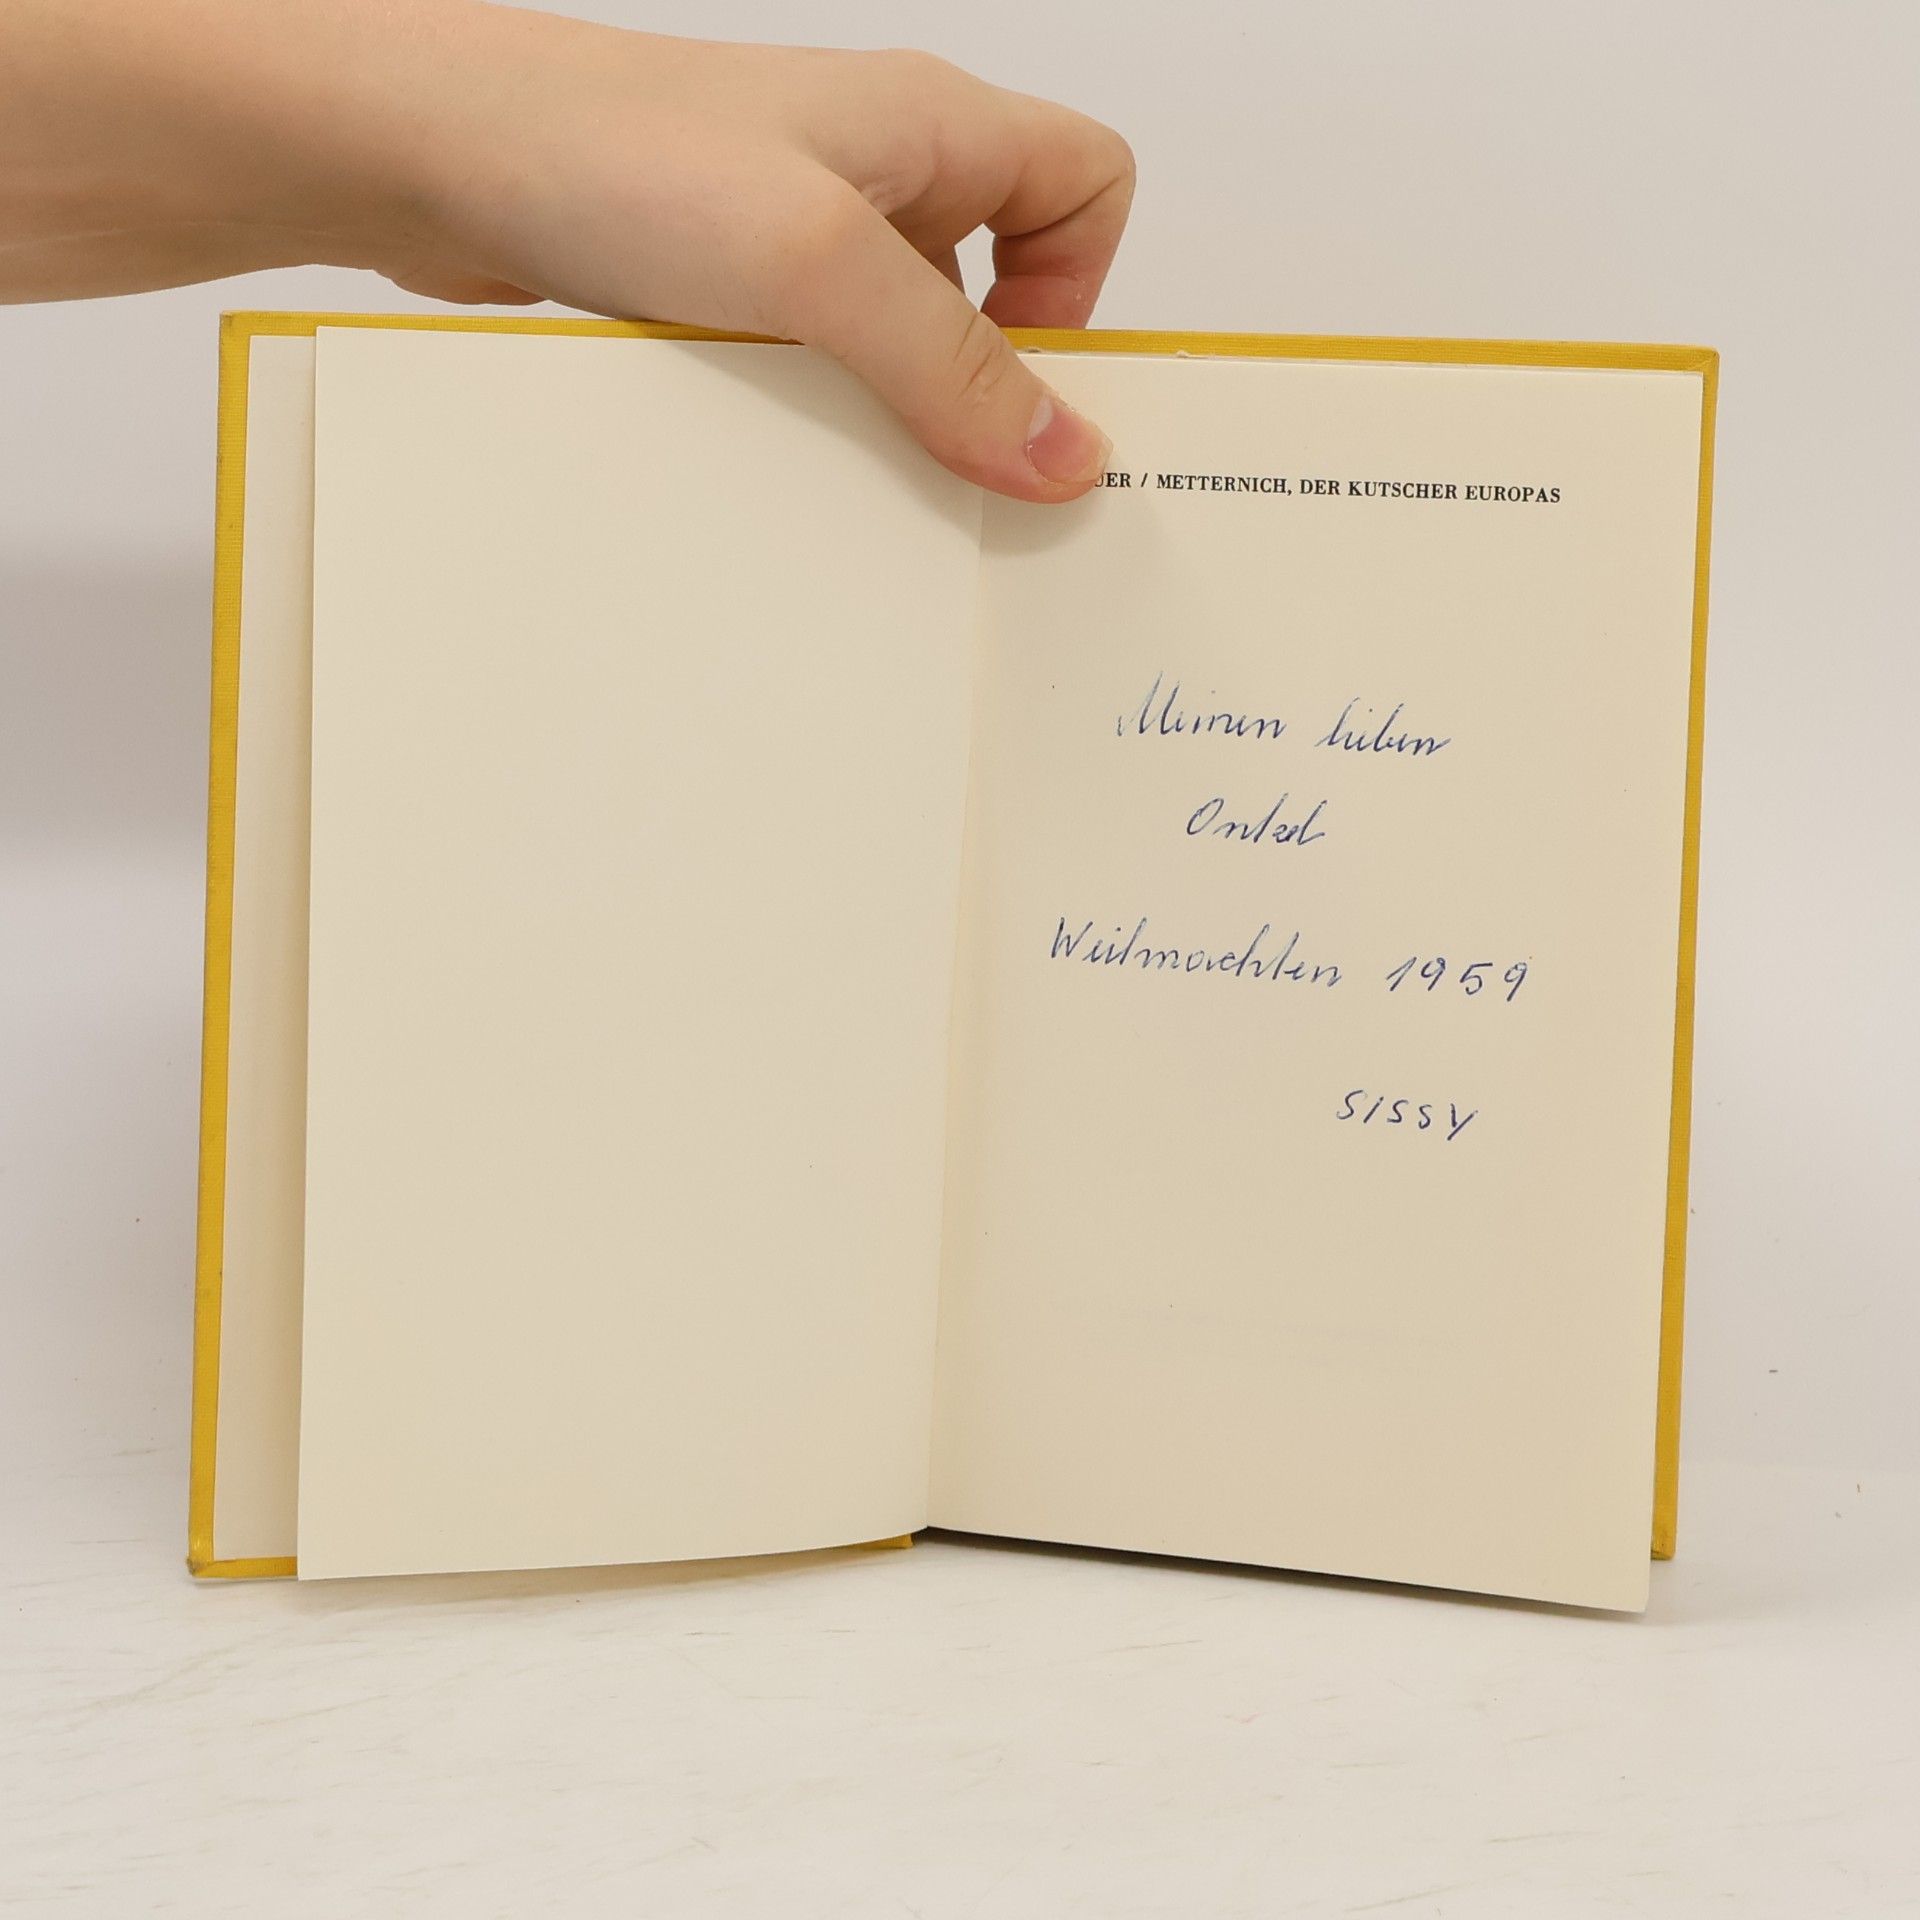 UER / METTERNICH, DER KUTSCHER EUROPAS
Meinen lieben
Onkel
Weihnachten 1959
SISSY